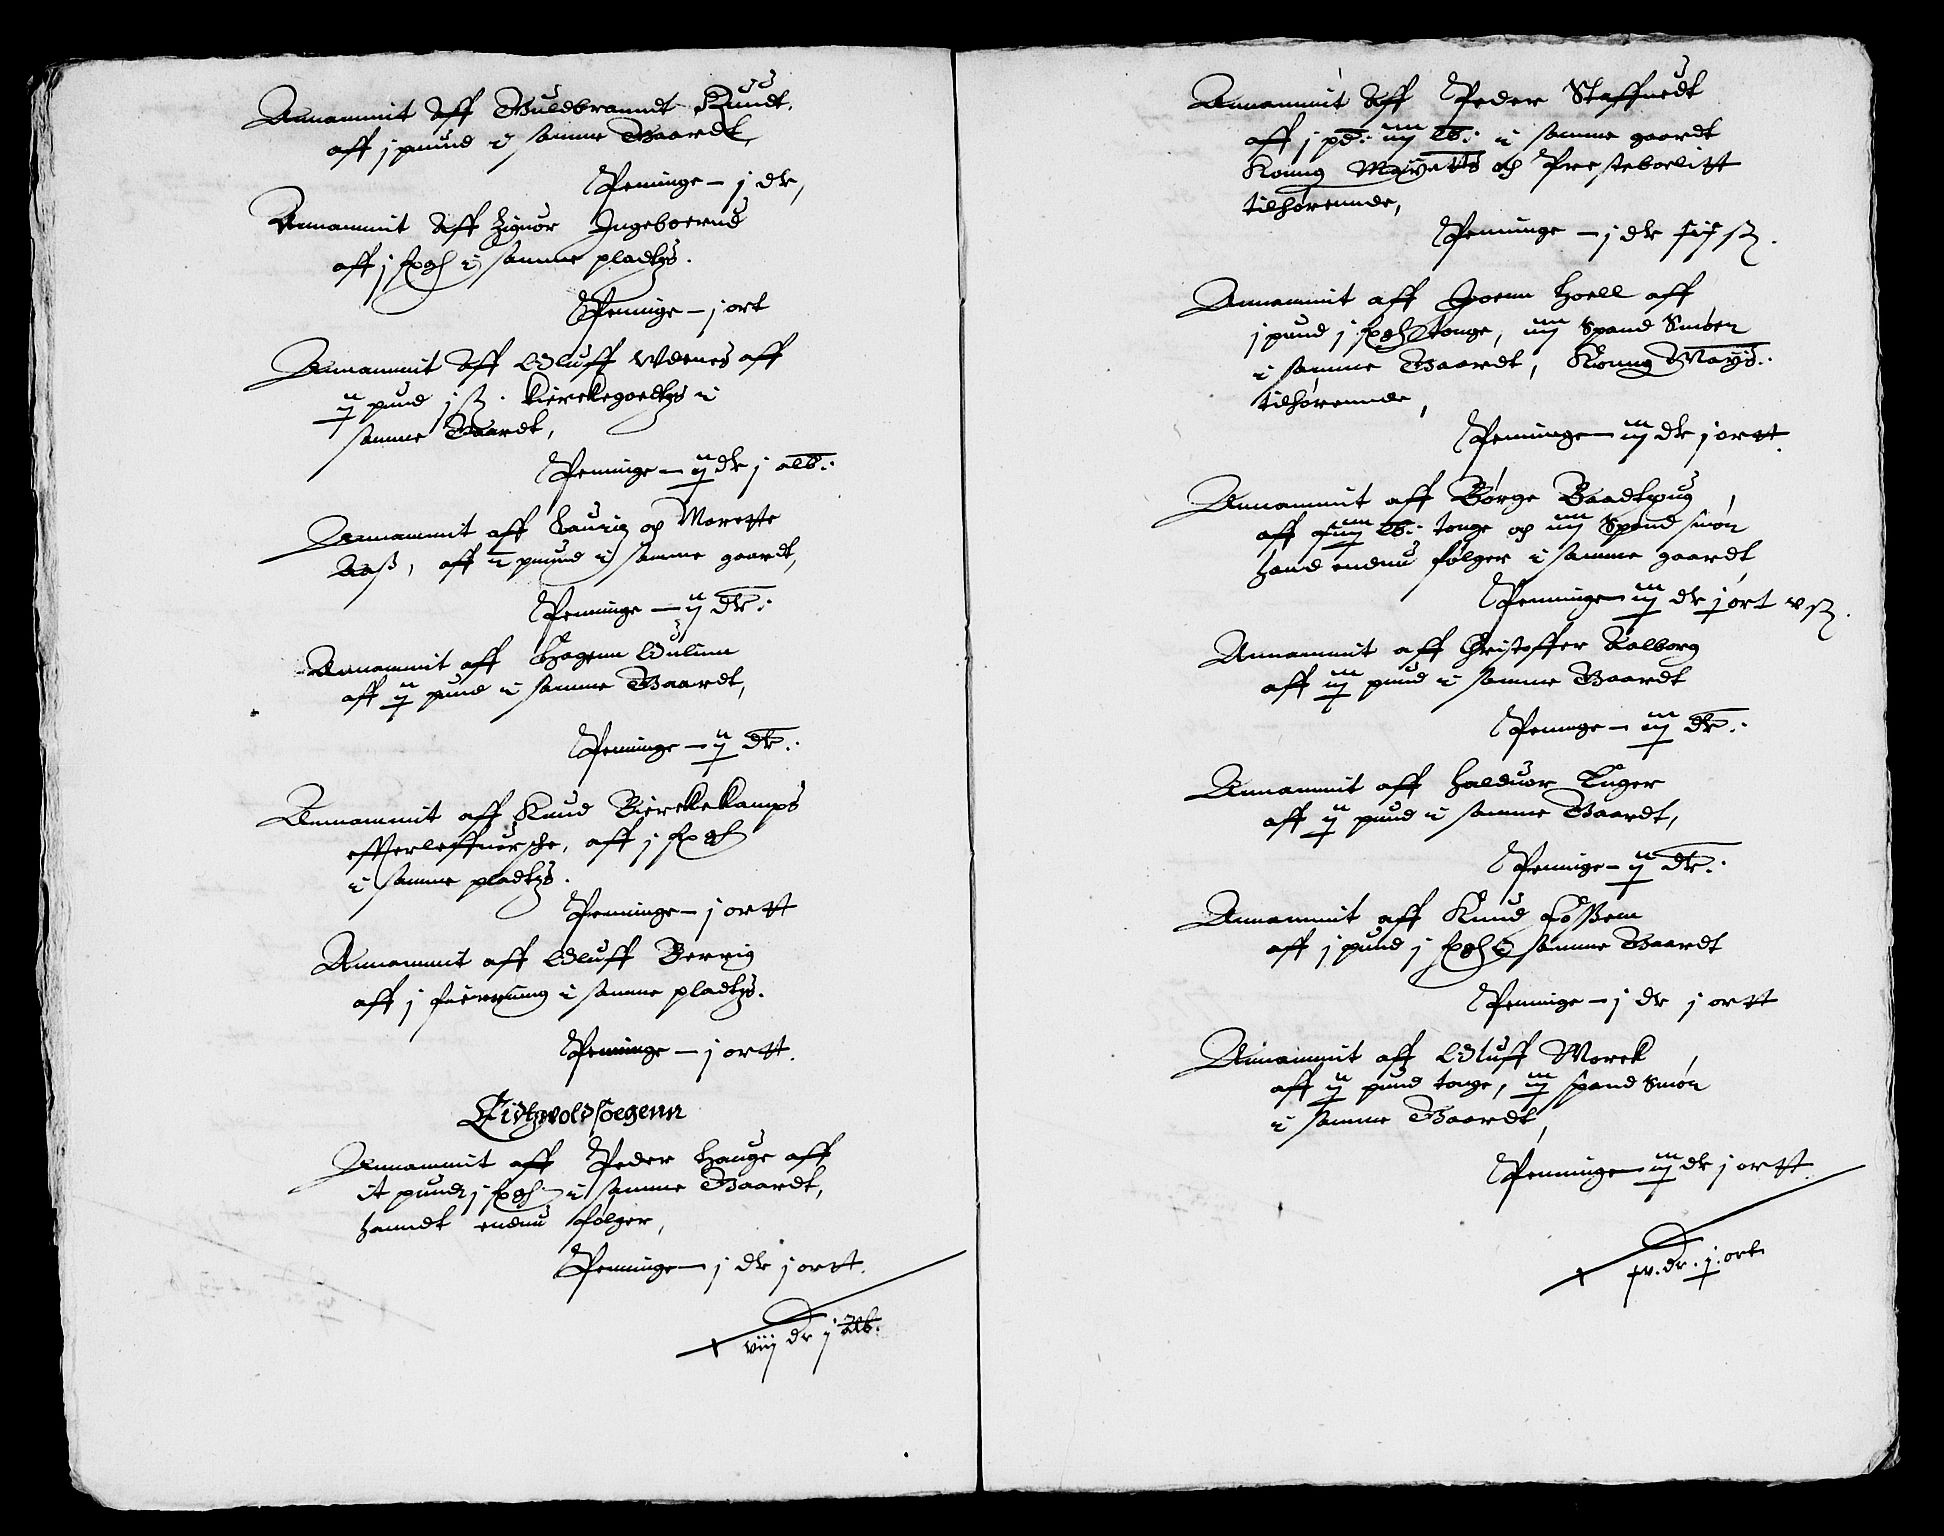 Annammit Aff Guldbranndt Ruudt,
aff j puund i samme Gaardt,
Penninge – j dr,
Annammit Aff Ingeboernd
aff j i samme pladtz.
Penninge – j ort
Annammit Aff Oluff aff
ij pund j ß. kierckegoedtz i
samme Gaardt,
Penninge – ij dr j alb:
Annammit aff Lauritz och Merette
Aaß, aff puund i samme gaardt,
Penninge – ij dr:
Annammit aff Hagenn
aff ij pund i samme Gaardt,
Penninge – ij dr:
Annammit aff Knud Bierckekamps
effterleffuersche, aff j
i samme pladtz.
Penninge – j ortt
Annammit aff Oluff Berrig
aff j fierning i samme pladtz.
Penninge – j ortt.
Eidtzvold soegenn
Annammit aff Peder Hauge aff
it pund j i samme Gaardt,
hanndt endnu følger,
Penninge – j dr j ortt.
viij dr j alb:
Annammit Aff Peder Staffnedt
aff j pd: iiij lb: i samme gaardt
Konng Mayetts och Presteboelitt
tilhørennde,
Penninge – j dr ß.
Annammit aff Joenn Hoell aff
j pund j tonge, iiij Spand Smøer
i samme Gaardt, Konng Mayts:
tilhørennde,
Penninge – iij dr j ortt.
Annammit aff Børge
aff lb: tonge och iiij Spand smør
hand endnu følger i samme gaardt
Penninge – iij dr j ort v ß.
Annammit aff Christoffer Aalborg
aff iij pund i samme Gaardt
Penninge – iij dr:
Annammit aff Halduor
aff ij pund i samme Gaardt,
Penninge – ij dr:
Annammit aff Knud Fossem
aff j pund j i samme Gaardt
Penninge – j dr j ortt
Annammit aff Oluff Morck
aff ij pund tonge, iij spand Smør
i samme Gaardt,
Penninge – iij dr j ortt.
xv. dr. j. ort